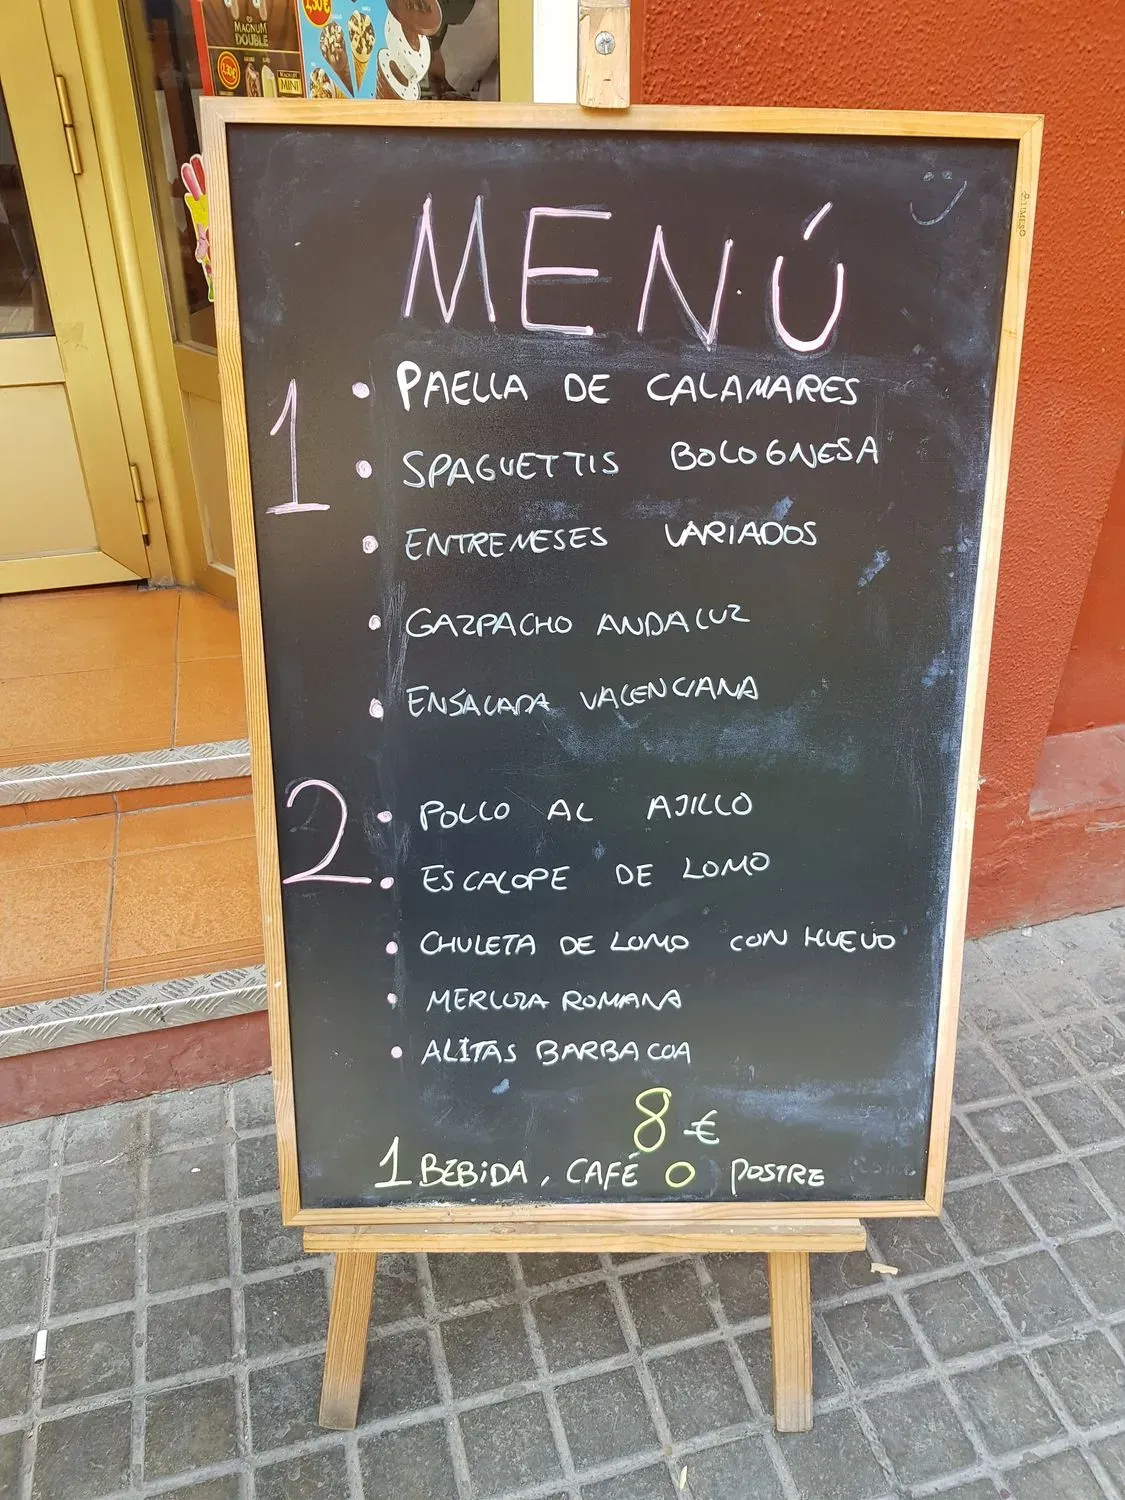 MAGNUM
DOUBLE
MINI
MENÚ
1 • PAELLA DE CALAMARES
• SPAGUETTIS BOLOGNESA
• ENTREMESES VARIADOS
• GAZPACHO ANDALUZ
• ENSALADA VALENCIANA
2 • POLLO AL AJILLO
• ESCALOPE DE LOMO
• CHULETA DE LOMO CON HUEVO
• MERLUZA ROMANA
• ALITAS BARBACOA
8 €
1 BEBIDA, CAFÉ O POSTRE